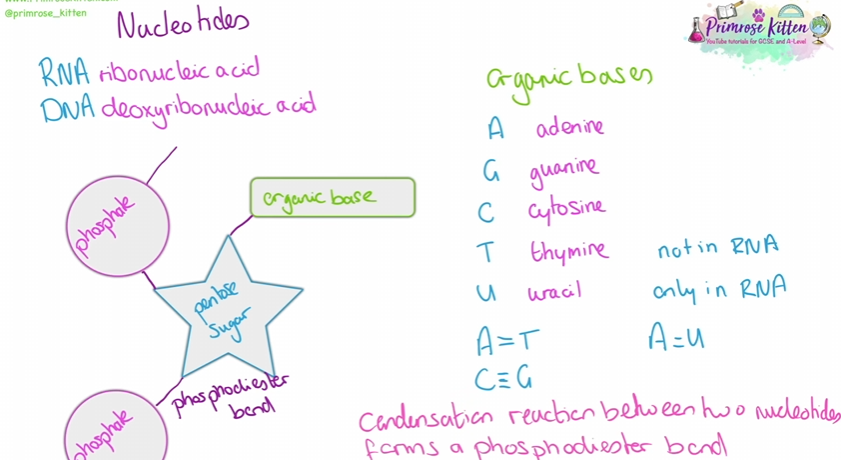 @primrose_kitten
Nucleotides
RNA ribonucleic acid
DNA deoxyribonucleic acid
phosphate
organic base
pentose
sugar
phosphodiester
bond
phosphate
Primrose Kitten
YouTube tutorials for GCSE and A-Level
organic bases
A adenine
G guanine
C cytosine
T thymine not in RNA
U uracil only in RNA
A=T A=U
C≡G
Condensation reaction between two nucleotides
forms a phosphodiester bond